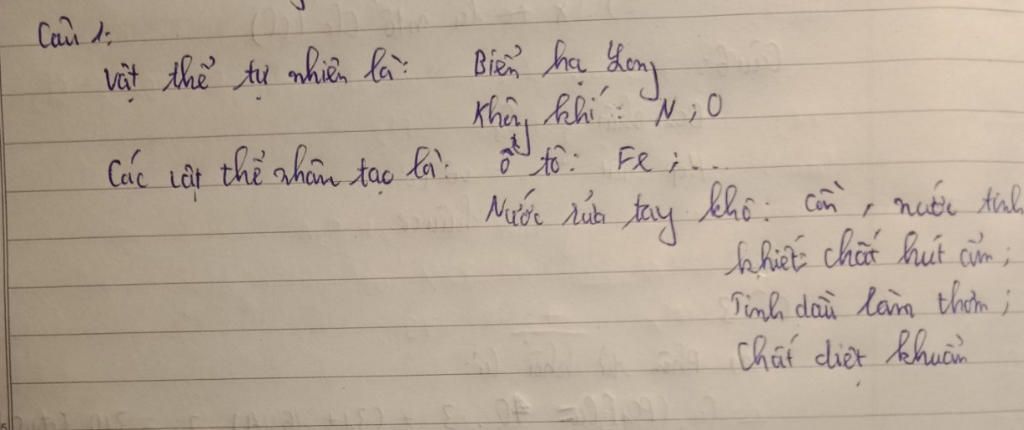 Câu 1:
Vật thể tự nhiên là: Biển hạ Long
Không khí: N; O
Các vật thể nhân tạo là: ô tô: Fe; ...
Nước rửa tay khô: cồn, nước tinh
khiết chất hút ẩm;
Tinh dầu làm thơm;
Chất diệt khuẩn